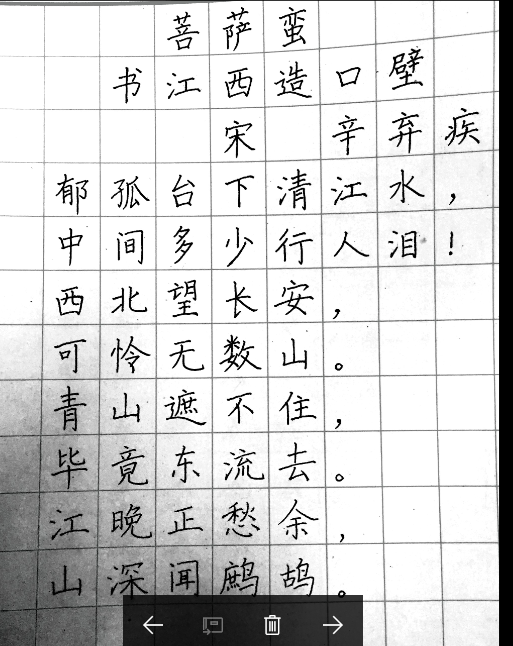 菩萨蛮
书江西造口壁
宋 辛弃疾
郁孤台下清江水，
中间多少行人泪！
西北望长安，
可怜无数山。
青山遮不住，
毕竟东流去。
江晚正愁余，
山深闻鹧鸪。